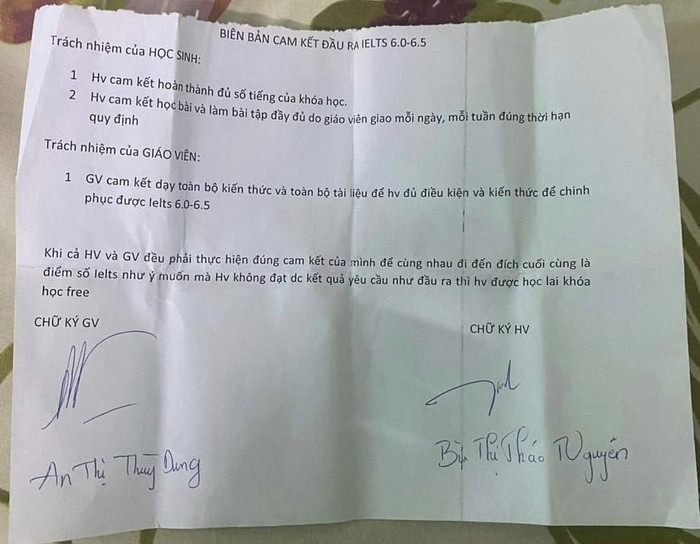 BIÊN BẢN CAM KẾT ĐẦU RA IELTS 6.0-6.5
Trách nhiệm của HỌC SINH:
1 Hv cam kết hoàn thành đủ số tiếng của khóa học.
2 Hv cam kết học bài và làm bài tập đầy đủ do giáo viên giao mỗi ngày, mỗi tuần đúng thời hạn
quy định
Trách nhiệm của GIÁO VIÊN:
1 GV cam kết dạy toàn bộ kiến thức và toàn bộ tài liệu để hv đủ điều kiện và kiến thức để chinh
phục được Ielts 6.0-6.5
Khi cả HV và GV đều phải thực hiện đúng cam kết của mình để cùng nhau đi đến đích cuối cùng là
điểm số Ielts như ý muốn mà Hv không đạt dc kết quả yêu cầu như đầu ra thì hv được học lai khóa
học free
CHỮ KÝ GV
CHỮ KÝ HV
An Thị Thùy Dung
Thị Thảo Nguyên